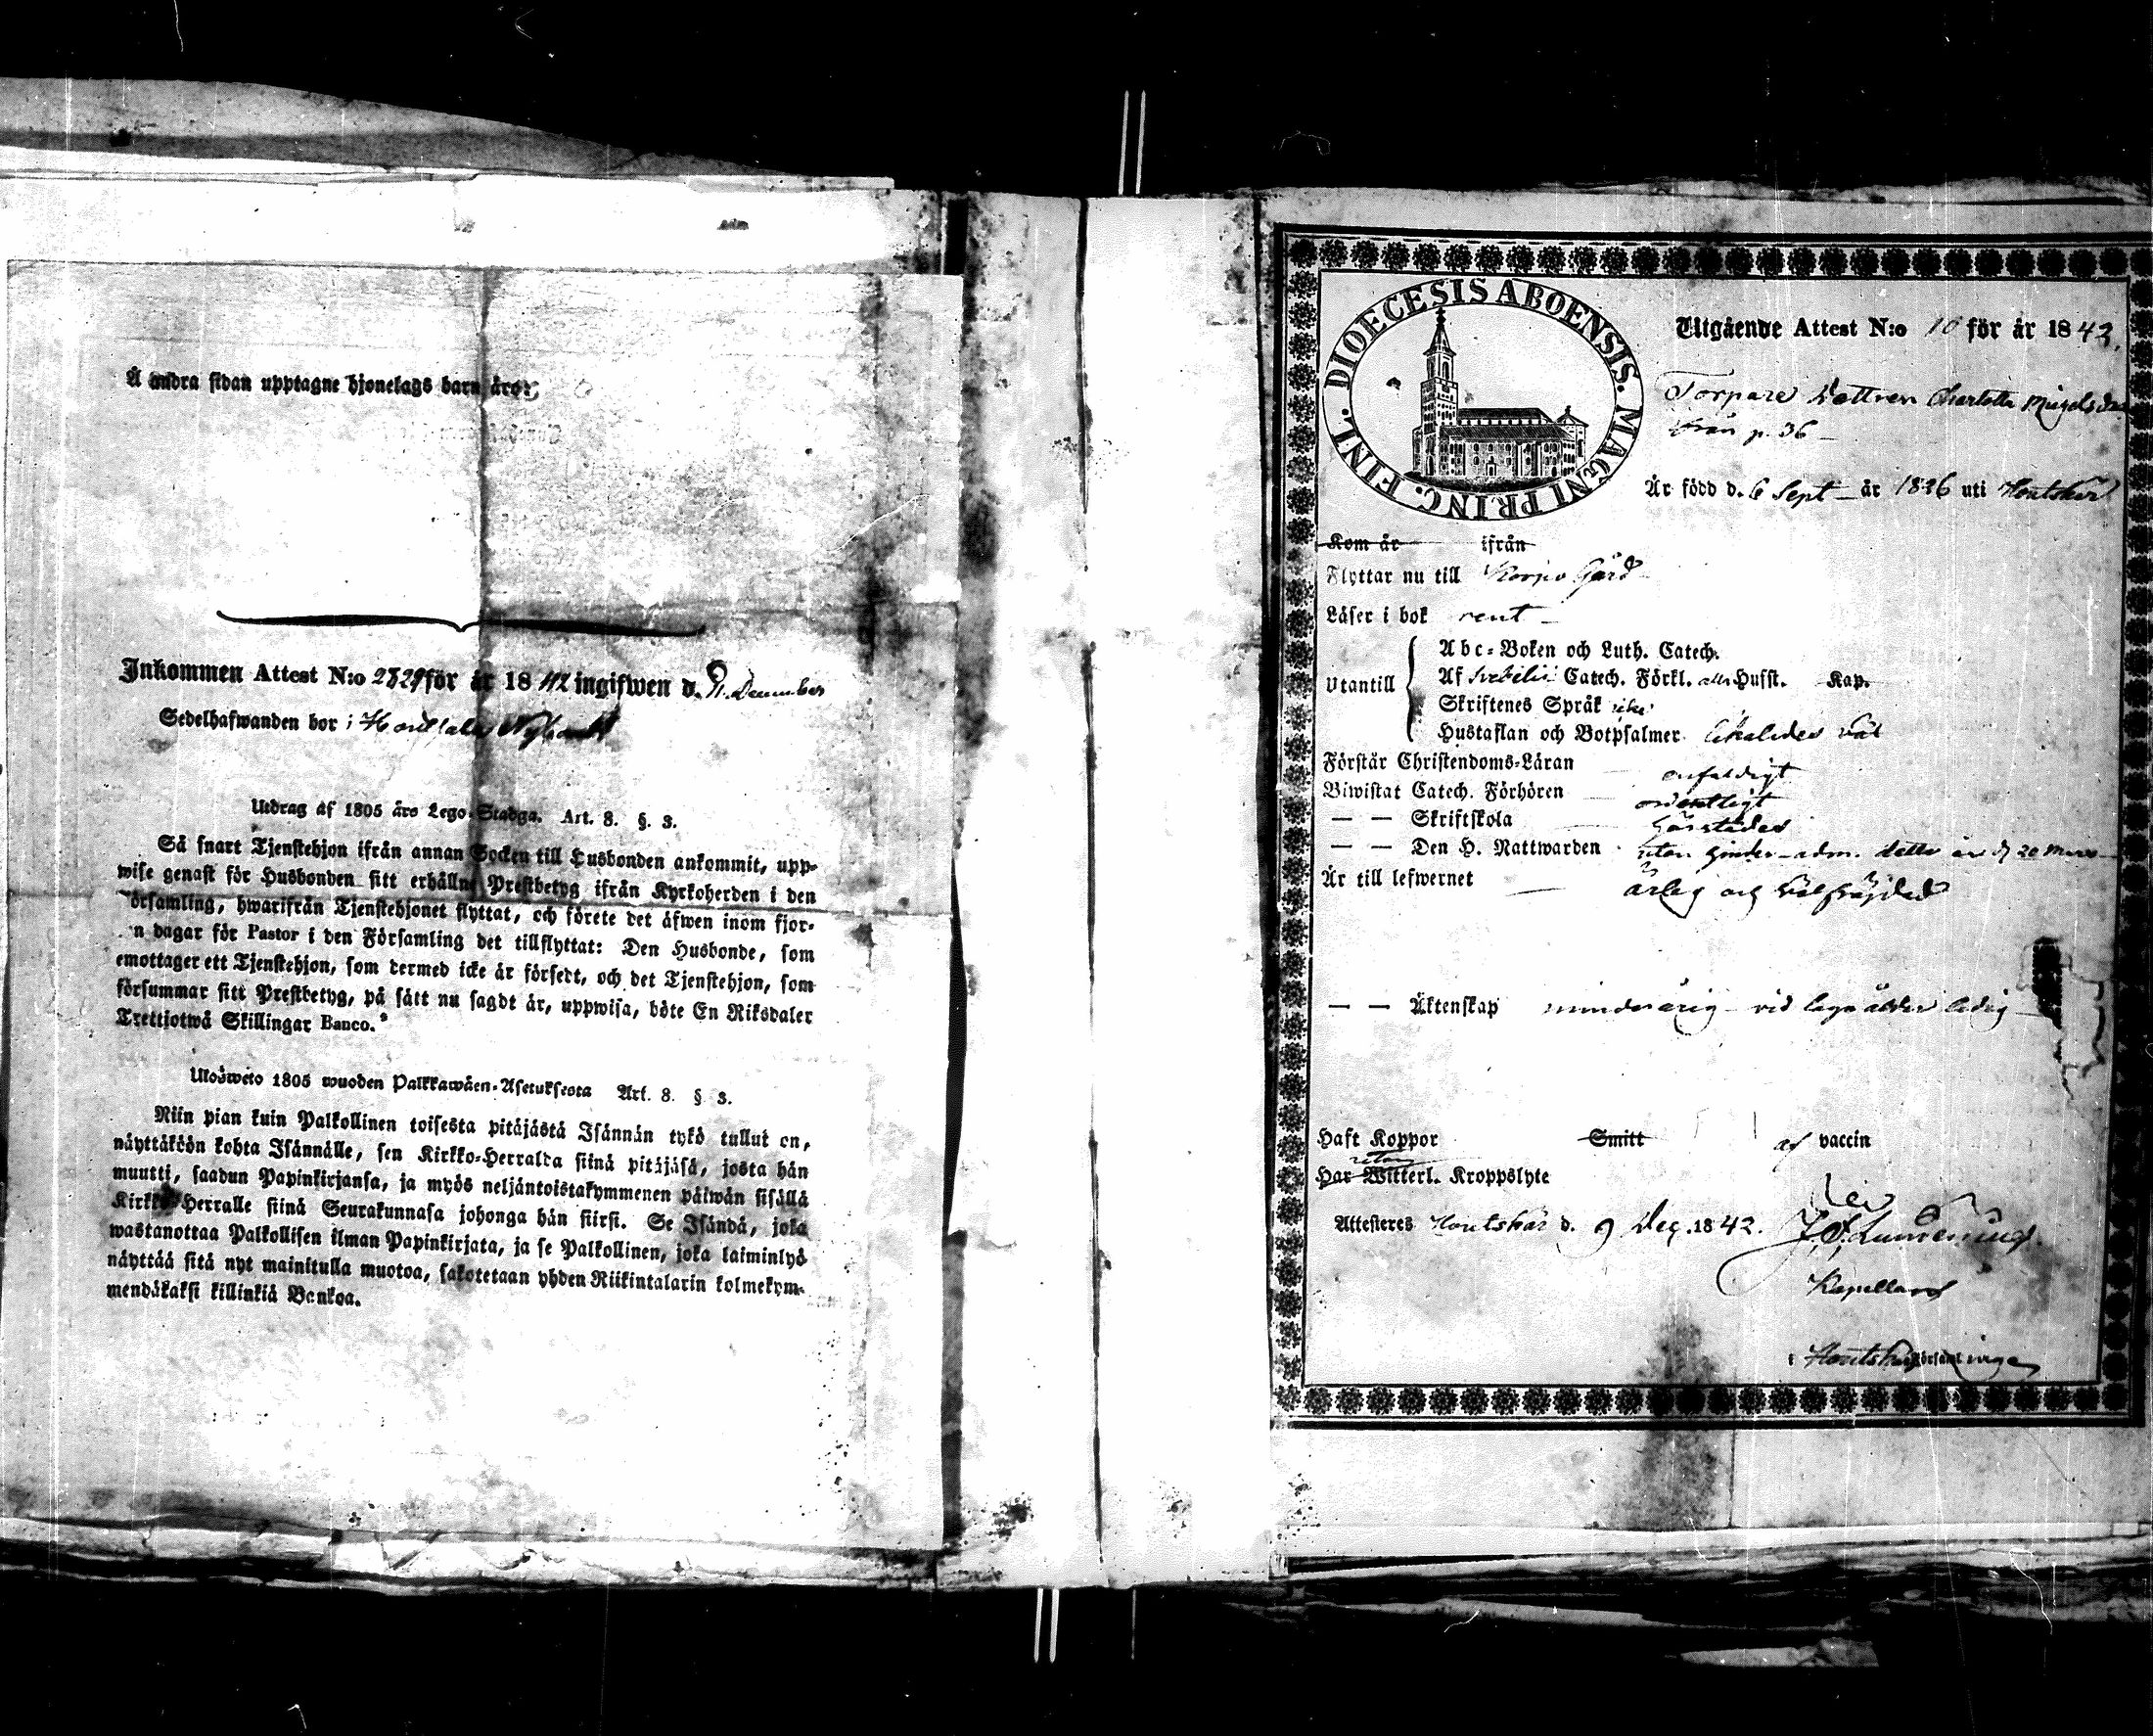 Å andra sidan upptagne hjonelags barn äro:
Inkommen Attest N:o 2829 för år 1842 ingifwen d. 31. December
Sedelhafwanden bor i
Utdrag af 1805 års Lego-Stadga. Art. 8. §. 3.
Så snart Tjenstehjon ifrån annan Socken till Husbonden ankommit, upp-
wise genast för Husbonden sitt erhållne Prestbetyg ifrån Kyrkoherden i den
örsamling, hwarifrån Tjenstehjonet flyttat, och förete det äfwen inom fjor-
n dagar för Pastor i den Församling det tillflyttat: Den Husbonde, som
emottager ett Tjenstehjon, som dermed icke är försedt, och det Tjenstehjon, som
försummar sitt Prestbetyg, på sätt nu sagdt är, uppwisa, böte En Riksdaler
Trettiotwå Skillingar Banco.
Ulosweto 1805 wuoden Palkkawäen-Asetuksesta Art. 8. § 3.
Niin pian kuin Palkollinen toisesta pitäjästä Isännän tykö tullut on,
näyttäköön kohta Isännälle, sen Kirkko-Herralta siinä pitäjäsä, josta hän
muutti, saadun Papinkirjansa, ja myös neljäntoistakymmenen päiwän sisällä
Kirkko-Herralle siinä Seurakunnasa johonga hän siirsi. Se Isändä, joka
wastanottaa Palkollisen ilman Papinkirjata, ja se Palkollinen, joka laiminlyö
näyttää sitä nyt mainitulla muotoa, sakotetaan yhden Riikintalarin kolmekym-
mendäkaksi killinkiä Bankoa.
DIOECESIS ABOENSIS. MAGNI PRINC. FINL.
Utgående Attest N:o 10 för år 1842.
Torpare Dottren Charlotta
från p. 36
Är född d. 6 Sept är 1826 uti Houtskär
Kom år ifrån
Flyttar nu till Korpo Gård
Läser i bok rent
Utantill
Abc-Boken och Luth. Catech.
Af Svebilii Catech. Förkl. Hufst. Kap.
Skriftenes Språk
Hustaflan och Botpsalmer likaledes
Förstår Christendoms-Läran enfaldigt
Biwistat Catech. Förhören ordentligt
— — Skriftskola härstädes
— — Den H. Nattwarden utan hinder adm. detta år d 20
Är till lefwernet ärlig och välfrägdad
— — Äktenskap minderårig vid laga ålder ledig
Haft Koppor Smitt af vaccin
Har utan Witterl. Kroppslyte
Attesteres Houtskär d. 9 Dec. 1842.
Kapellan
i Houtskär Församlinge